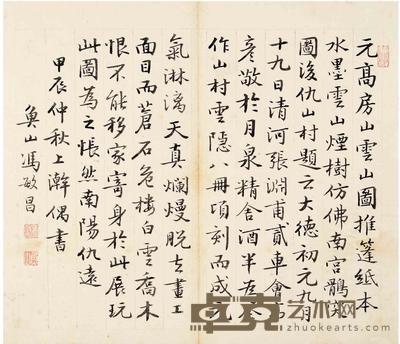 元高房山雲山圖推篷紙本
水墨雲山煙樹仿佛南宮鷗波
圖後仇山村題云大德初元九月
十九日清河張淵甫貳車會
彥敬於月泉精舍酒半為余
作山村雲隱八冊頃刻而成元
氣淋漓天真爛熳脫去畫工
面目而蒼石危樓白雲喬木
恨不能移家寄身於此展玩
此圖為之悵然南陽仇遠
甲辰仲秋上澣偶書
魚山馮敏昌
卓克艺术网
zhuokearts.com